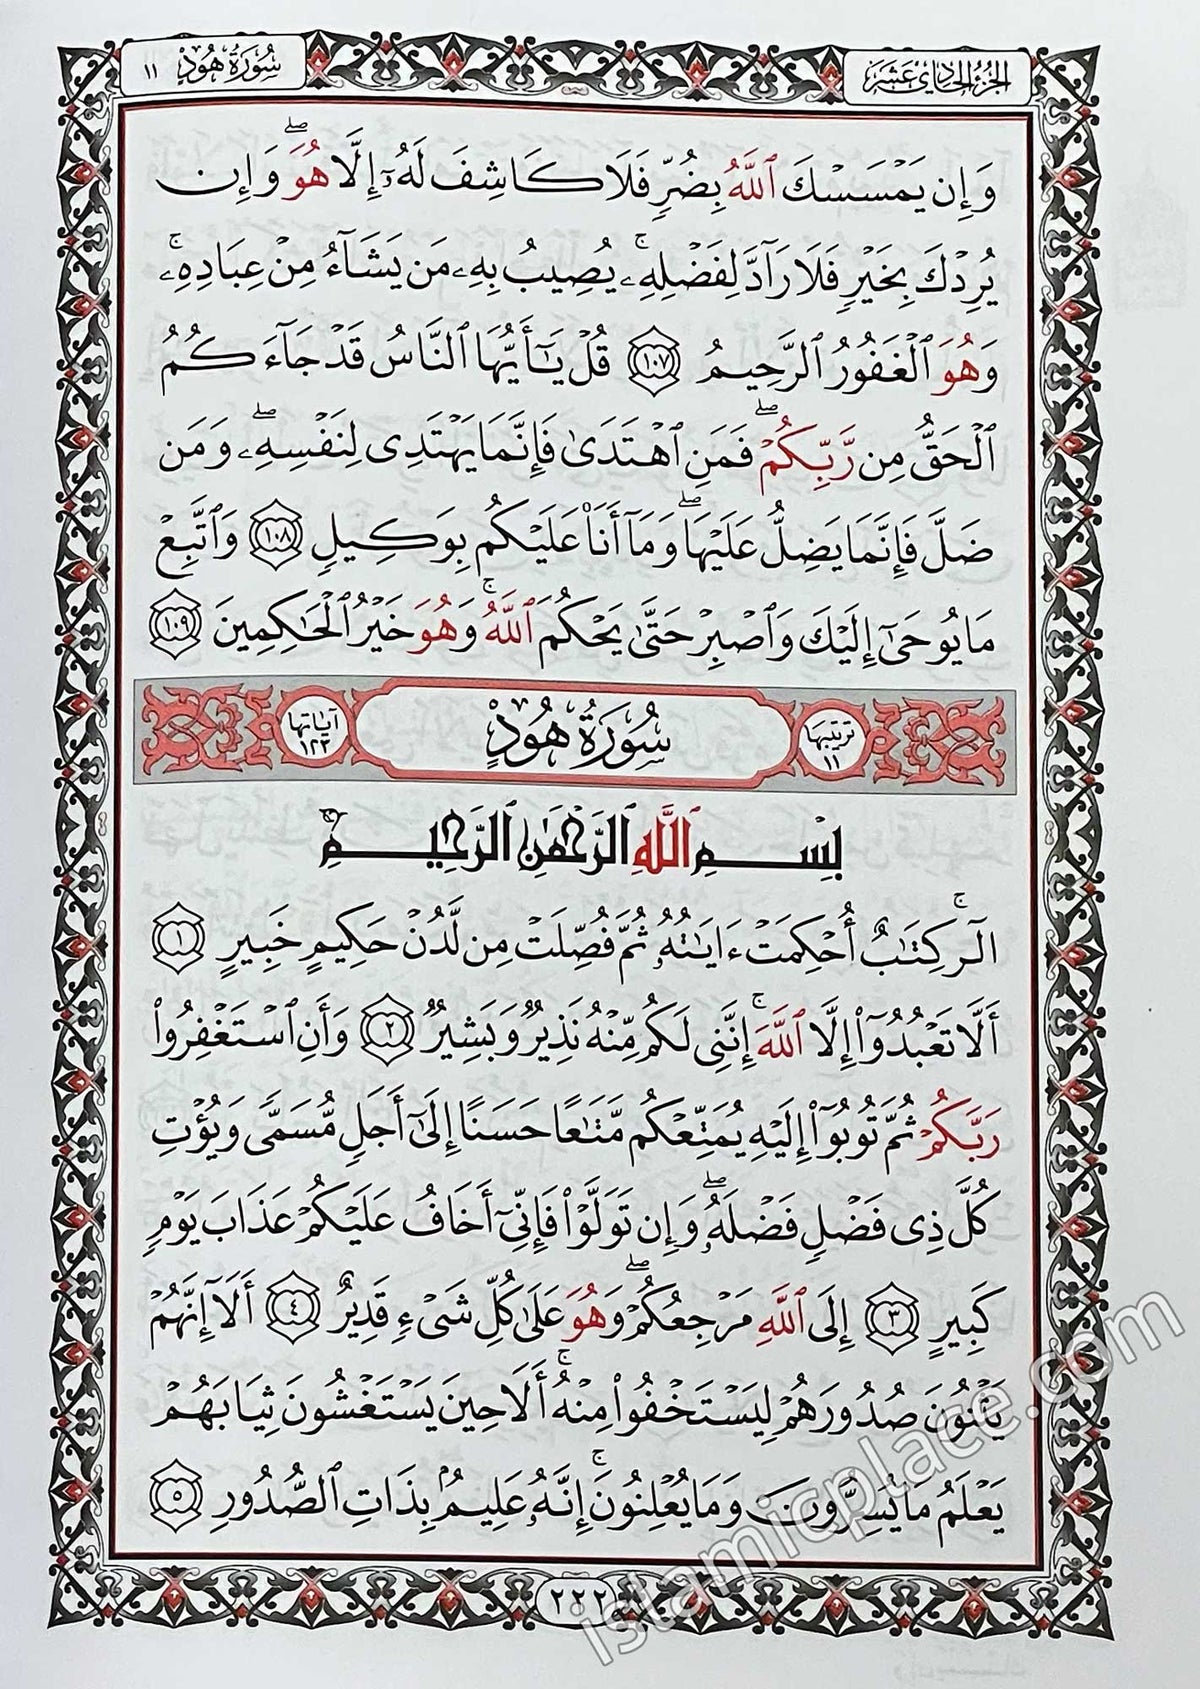 الجزء الحادي عشر
سورة هود ١١
وَإِن يَمْسَسْكَ ٱللَّهُ بِضُرٍّ فَلَا كَاشِفَ لَهُۥٓ إِلَّا هُوَ ۖ وَإِن
يُرِدْكَ بِخَيْرٍ فَلَا رَآدَّ لِفَضْلِهِۦ ۚ يُصِيبُ بِهِۦ مَن يَشَآءُ مِنْ عِبَادِهِۦ ۚ
وَهُوَ ٱلْغَفُورُ ٱلرَّحِيمُ ١٠٧ قُلْ يَـٰٓأَيُّهَا ٱلنَّاسُ قَدْ جَآءَكُمُ
ٱلْحَقُّ مِن رَّبِّكُمْ ۖ فَمَنِ ٱهْتَدَىٰ فَإِنَّمَا يَهْتَدِى لِنَفْسِهِۦ ۖ وَمَن
ضَلَّ فَإِنَّمَا يَضِلُّ عَلَيْهَا ۖ وَمَآ أَنَا۠ عَلَيْكُم بِوَكِيلٍ ١٠٨ وَٱتَّبِعْ
مَا يُوحَىٰٓ إِلَيْكَ وَٱصْبِرْ حَتَّىٰ يَحْكُمَ ٱللَّهُ ۚ وَهُوَ خَيْرُ ٱلْحَـٰكِمِينَ ١٠٩
ترتيبها ١١
سُورَةُ هُودٍ
آياتها ١٢٣
بِسْمِ ٱللَّهِ ٱلرَّحْمَـٰنِ ٱلرَّحِيمِ
الٓر ۚ كِتَـٰبٌ أُحْكِمَتْ ءَايَـٰتُهُۥ ثُمَّ فُصِّلَتْ مِن لَّدُنْ حَكِيمٍ خَبِيرٍ ١
أَلَّا تَعْبُدُوٓا۟ إِلَّا ٱللَّهَ ۚ إِنَّنِى لَكُم مِّنْهُ نَذِيرٌ وَبَشِيرٌ ٢ وَأَنِ ٱسْتَغْفِرُوا۟
رَبَّكُمْ ثُمَّ تُوبُوٓا۟ إِلَيْهِ يُمَتِّعْكُم مَّتَـٰعًا حَسَنًا إِلَىٰٓ أَجَلٍ مُّسَمًّى وَيُؤْتِ
كُلَّ ذِى فَضْلٍ فَضْلَهُۥ ۖ وَإِن تَوَلَّوْا۟ فَإِنِّىٓ أَخَافُ عَلَيْكُمْ عَذَابَ يَوْمٍ
كَبِيرٍ ٣ إِلَى ٱللَّهِ مَرْجِعُكُمْ ۖ وَهُوَ عَلَىٰ كُلِّ شَىْءٍ قَدِيرٌ ٤ أَلَآ إِنَّهُمْ
يَثْنُونَ صُدُورَهُمْ لِيَسْتَخْفُوا۟ مِنْهُ ۚ أَلَا حِينَ يَسْتَغْشُونَ ثِيَابَهُمْ
يَعْلَمُ مَا يُسِرُّونَ وَمَا يُعْلِنُونَ ۚ إِنَّهُۥ عَلِيمٌۢ بِذَاتِ ٱلصُّدُورِ ٥
٢٢٢
islamicplace.com